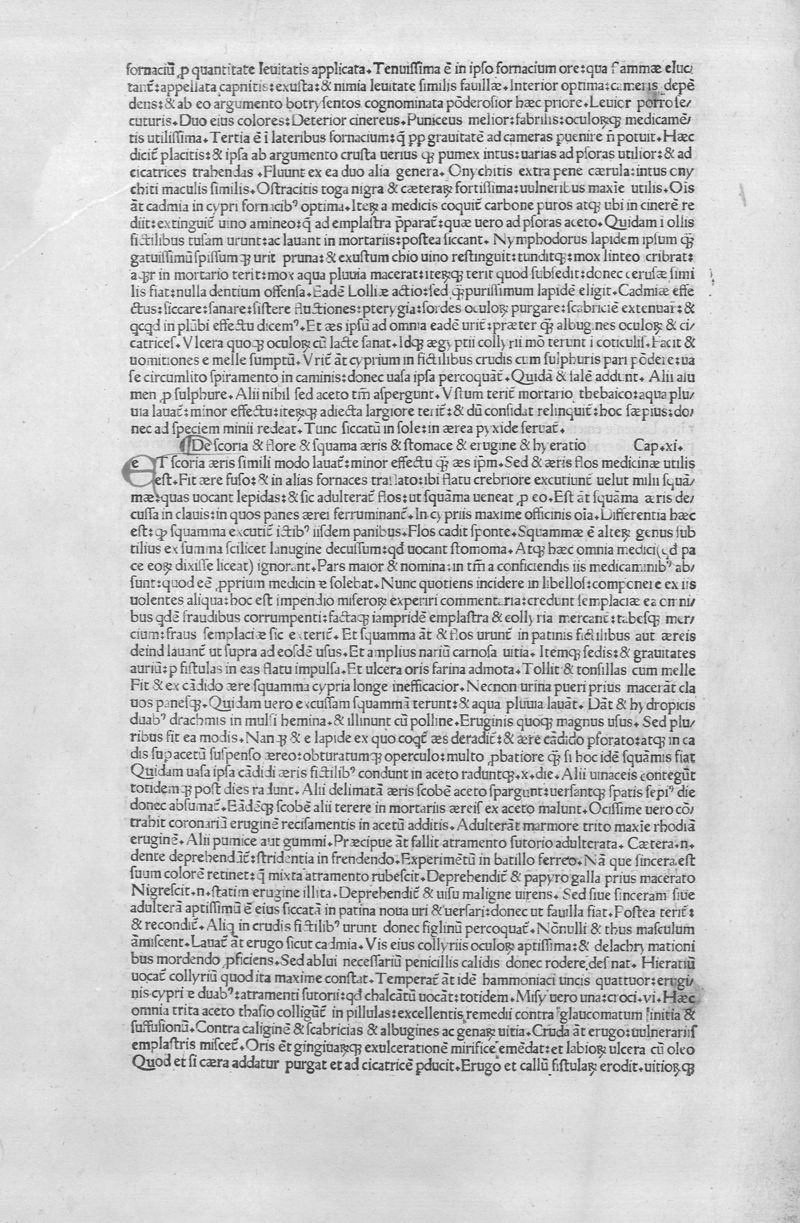 fornaciũ ꝓ quantitate leuitatis applicata. Tenuiſſima ē in ipſo fornacium ore: qua flammæ eluc
tant̃: appellata capnitis: exuſta: & nimia leuitate ſimilis fauillæ. Interior optima: cameris depē
dens: & ab eo argumento botryſentos cognominata pōderoſior hæc priore. Leuior porro ſe/
cuturis. Duo eius colores: Deterior cinereus. Puniceus melior: fabrilis: oculoꝝqꝫ medicamē/
tis utiliſſima. Tertia ē ī lateribus fornacium: q̃ pp grauitatē ad cameras puenire ñ potuit. Hæc
dicit̃ placitis: & ipſa ab argumento cruſta uerius qꝫ pumex intus: uarias ad pſoras utilior: & ad
cicatrices trahendas. Fluunt ex ea duo alia genera. Onychitis extra pene cærula: intus ony
chiti maculis ſimilis. Oſtracitis toga nigra & cæteraꝝ fortiſſima: uulneribus maxīe utilis. Oīs
āt cadmia in cypri fornacibꝰ optima. Iteꝝ a medicis coquit̃ carbone puros atqꝫ ubi in cinerē re
diit: extinguit̃ uino amineo: q̃ ad emplaſtra p̄parat̃: quæ uero ad pſoras aceto. Quidam ī ollis
fictilibus tuſam urunt: ac lauant in mortariis: poſtea ſiccant. Nymphodorus lapidem ipſum qꝫ̃
gatuiſſimũ ſpiſſum qꝫ urit pruna: & exuſtum chio uino reſtinguit: tunditqꝫ: mox linteo cribrat:
aꝗꝛ in mortario terit: mox aqua pluuia macerat: iteꝝqꝫ terit quod ſubſedit: donec ceruſæ ſimi
lis fiat: nulla dentium offenſa. Eadē Lolliæ actio: ſed qꝫ̃puriſſimum lapidē eligit. Cadmiæ effe
ctus: ſiccare: ſanare: ſiſtere fluctiones: pterygia: ſordes oculoꝝ purgare: ſcabriciē extenuar̃: &
qcqd in plūbi effectu dicemꝰ. Et æs ipſũ ad omnia eadē urit̃: præter qꝫ̃ albugines oculoꝝ & ci/
catriceſ. Vlcera quoqꝫ oculoꝝ cũ lacte ſanat. Idqꝫ ægyptii collyrii mō terunt ī coticulis. Facit &
uomitiones e melle ſumptũ. Vrit̃ āt cyprium in fictilibus crudis cum ſulphuris pari pōdere: ua
ſe circumlito ſpiramento in caminis: donec uaſa ipſa percoquāt̃. Quidā & ſalē addunt. Alii alu
men ꝓ ſulphure. Alii nihil ſed aceto tm̃ aſpergunt. Vſtum terit̃ mortario thebaico: aqua plu/
uia lauat̃: minor effectu: iteꝝqꝫ adiecta largiore terit̃: & dũ conſidat relinquit̃: hoc ſæpius: do/
nec ad ſpeciem minii redeat. Tunc ſiccatũ in ſole: in ærea pyxide ſeruat̃.
¶De ſcoria & flore & ſquama æris & ſtomace & erugine & hyeratio Cap. xi.
eT ſcoria æris ſimili modo lauat̃: minor effectu qꝫ̃ æs ip̃m. Sed & æris flos medicinæ utilis
eſt. Fit ære fuſo: & in alias fornaces tranſlato: ibi flatu crebriore excutiunt̃ uelut milii ſquã/
mæ: quas uocant lepidas: & ſic adulterat̃ flos: ut ſquāma ueneat ꝓ eo. Eſt āt ſquāma æris de/
cuſſa in clauis: in quos panes ærei ferruminant̃. In cypriis maxime officinis oīa. Differentia hæc
eſt: qꝫ ſquamma excutit̃ ictibꝰ iiſdem panibus. Flos cadit ſponte. Squammæ ē alteꝝ genus ſub
tilius ex ſumma ſcilicet lanugine decuſſum: qd uocant ſtomoma. Atqꝫ hæc omnia medici (qd pa
ce eoꝝ dixiſſe liceat) ignorant. Pars maior & nomina: in tm̃ a conficiendis iis medicaminibꝰ ab/
ſunt: quod eē ꝓprium medicinæ ſolebat. Nunc quotiens incidere in libellos: componere ex iis
uolentes aliqua: hoc eſt impendio miſeroꝝ experiri commentaria: credunt ſemplaciæ ea omni/
bus qdē fraudibus corrumpenti: factaqꝫ iampridē emplaſtra & collyria mercant̃: tabeſqꝫ mer/
cium: fraus ſemplaciæ ſic exterit̃. Et ſquamma āt & flos urunt̃ in patinis fictilibus aut æreis
deind lauant̃ ut ſupra ad eoſdē uſus. Et amplius nariũ carnoſa uitia. Itemqꝫ ſedis: & grauitates
auriũ: ꝑ fiſtulas in eas flatu impulſa. Et ulcera oris farina admota. Tollit & tonſillas cum melle
Fit & ex cādido ære ſquamma cypria longe inefficacior. Necnon urina pueri prius macerāt cla
uos paneſqꝫ. Quidam uero excuſſam ſquammā terunt: & aqua pluuia lauāt. Dāt & hydropicis
duabꝰ drachmis in mulſi hemina. & illinunt cũ polline. Eruginis quoqꝫ magnus uſus. Sed plu/
ribus fit ea modis. Nanqꝫ & e lapide ex quo coqt̃ æs deradit̃: & ære cādido pforato: atqꝫ in ca
dis ſup acetũ ſuſpenſo æreo: obturatumqꝫ operculo: multo ꝓbatiore qꝫ̃ ſi hoc idē ſquāmis fiat
Quidam uaſa ipſa cādidi æris fictilibꝰ condunt in aceto raduntqꝫ. x. die. Alii uinaceis contegũt
totidemqꝫ poſt dies radunt. Alii delimatā æris ſcobē aceto ſpargunt: uerſantqꝫ ſpatis ſepiꝰ die
donec abſumat̃. Eādēqꝫ ſcobē alii terere in mortariis æreiſ ex aceto malunt. Ociſſime uero cō/
trahit coronariā eruginē reciſamentis in acetũ additis. Adulterāt marmore trito maxīe rhodiā
eruginē. Alii pumice aut gummi. Præcipue āt fallit atramento ſutorio adulterata. Cætera. n.
dente deprehendũt̃: ſtridentia in frendendo. Experimētũ in batillo ferreo. Nā que ſincera eſt
ſuum colorē retinet: q̃ mixta atramento rubeſcit. Deprehendit̃ & papyro galla prius macerato
Nigreſcit. n. ſtatim erugine illita. Deprehendit̃ & uiſu maligne uirens. Sed ſiue ſinceram ſiue
adulterā aptiſſimũ ē eius ſiccatā in patina noua uri & uerſari: donec ut fauilla fiat. Poſtea terit̃:
& recondit̃. Aliq in crudis fictilibꝰ urunt donec figlinũ percoquat̃. Nōnulli & thus maſculum
āmiſcent. Lauat̃ āt erugo ſicut cadmia. Vis eius collyriis oculoꝝ aptiſſima: & delachrymationi
bus mordendo ꝓficiens. Sed ablui neceſſariũ penicillis calidis donec rodere deſinat. Hieratiũ
uocat̃ collyriũ quod ita maxime conſtat. Temperat̃ āt idē hammoniaci uncis quattuor: erugi/
nis cypriæ duabꝰ: atramenti ſutorii: qd chalcātũ uocāt: totidem. Miſy uero una: croci. vi. Hæc
omnia trita aceto thaſio colligũt̃ in pillulas: excellentis remedii contra glaucomatum initia &
ſuffuſionũ. Contra caliginē & ſcabricias & albugines ac genaꝝ uitia. Cruda āt erugo: uulnerariiſ
emplaſtris miſcet̃. Oris ēt gingiuaꝝqꝫ exulcerationē mirifice emēdat: et labioꝝ ulcera cũ oleo
Quod et ſi cæra addatur purgat et ad cicatricē pducit. Erugo et callũ fiſtulaꝝ erodit. uitioꝝqꝫ